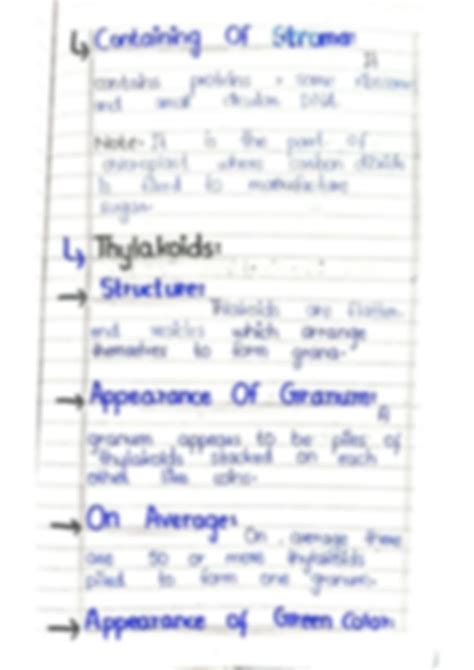 Containing Of Stroma:
It
contains proteins, some ribosome
and small circular DNA.
Note:- It is the part of
chloroplast where carbon dioxide
is fixed to manufacture
sugar.
Thylakoids:
Structure:
Thlakoids are flatten-
end vesicles which arrange
themselves to form grana.
Appearance Of Granum:
A
granum appears to be piles of
thylakoids stacked on each
other like coins.
On Average:
On average there
are 50 or more thylakoids
piled to form one granum.
Appearance of Green Color: